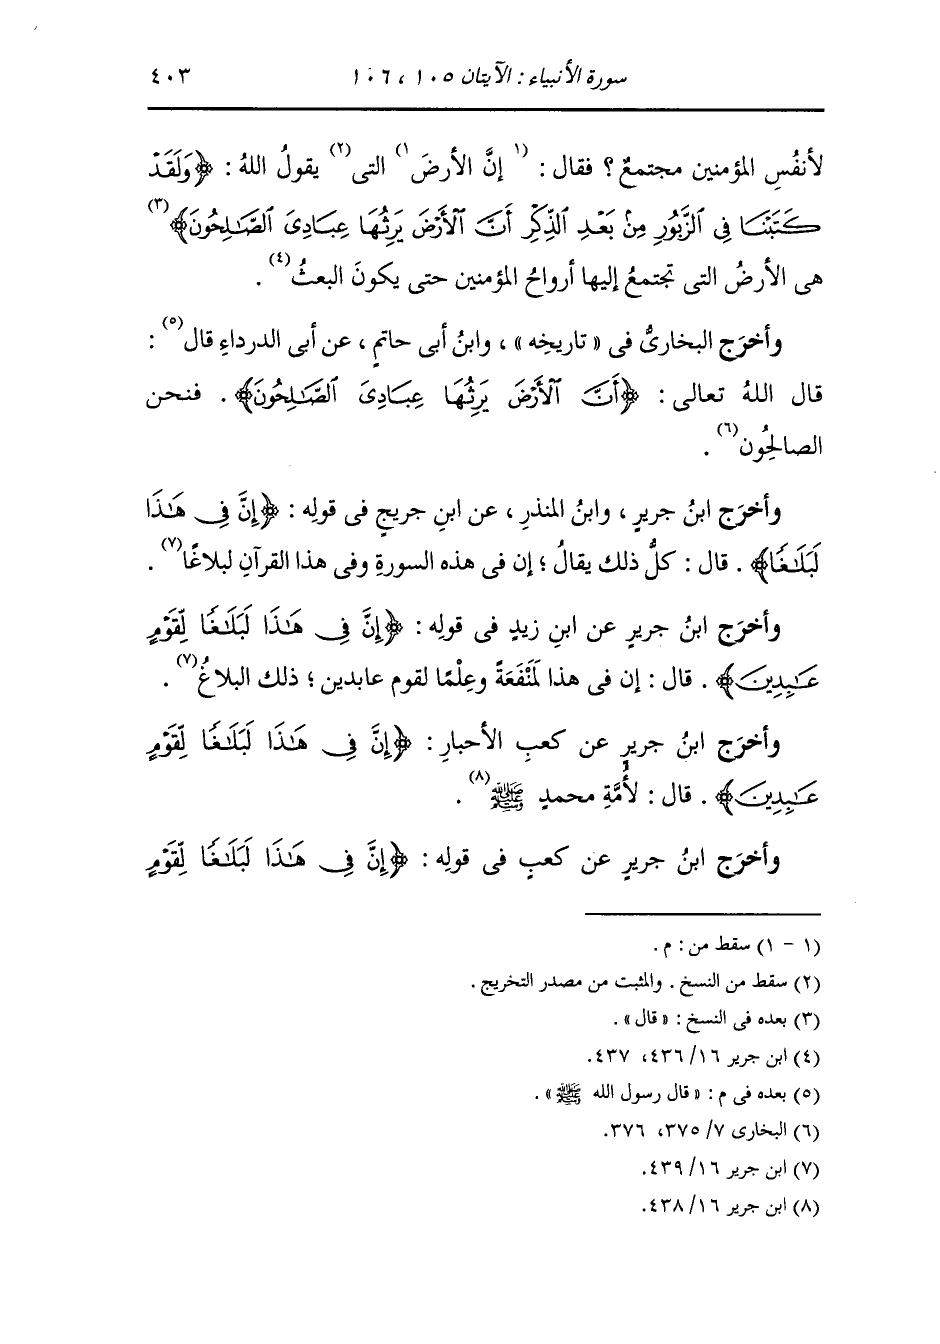 سورة الأنبياء : الآيتان ١٠٥ ، ١٠٦ ٤٠٣
لأنفُسِ المؤمنين مجتمعٌ ؟ فقال : (١ إنَّ الأرضَ ١) التى (٢) يقولُ اللهُ : ﴿وَلَقَدْ
كَتَبْنَا فِى ٱلزَّبُورِ مِنۢ بَعْدِ ٱلذِّكْرِ أَنَّ ٱلْأَرْضَ يَرِثُهَا عِبَادِىَ ٱلصَّٰلِحُونَ﴾ (٣)
هى الأرضُ التى تجتمعُ إليها أرواحُ المؤمنين حتى يكونَ البعثُ (٤) .
وأخرَج البخارىُّ فى « تاريخِه » ، وابنُ أبى حاتمٍ ، عن أبى الدرداءِ قال (٥) :
قال اللهُ تعالى : ﴿أَنَّ ٱلْأَرْضَ يَرِثُهَا عِبَادِىَ ٱلصَّٰلِحُونَ﴾ . فنحن
الصالحُون (٦) .
وأخرَج ابنُ جريرٍ ، وابنُ المنذرِ ، عن ابنِ جريجٍ فى قولِه : ﴿إِنَّ فِى هَٰذَا
لَبَلَٰغًا﴾ . قال : كلُّ ذلك يقالُ ؛ إن فى هذه السورةِ وفى هذا القرآنِ لبلاغًا (٧) .
وأخرَج ابنُ جريرٍ عن ابنِ زيدٍ فى قولِه : ﴿إِنَّ فِى هَٰذَا لَبَلَٰغًا لِّقَوْمٍ
عَٰبِدِينَ﴾ . قال : إن فى هذا لَمَنْفَعَةً وعِلْمًا لقوم عابدين ؛ ذلك البلاغُ (٧) .
وأخرَج ابنُ جريرٍ عن كعبِ الأحبارِ : ﴿إِنَّ فِى هَٰذَا لَبَلَٰغًا لِّقَوْمٍ
عَٰبِدِينَ﴾ . قال : لأُمَّةِ محمدٍ ﷺ (٨) .
وأخرَج ابنُ جريرٍ عن كعبٍ فى قولِه : ﴿إِنَّ فِى هَٰذَا لَبَلَٰغًا لِّقَوْمٍ
(١ - ١) سقط من : م .
(٢) سقط من النسخ . والمثبت من مصدر التخريج .
(٣) بعده فى النسخ : « قال » .
(٤) ابن جرير ١٦/ ٤٣٦، ٤٣٧.
(٥) بعده فى م : « قال رسول الله ﷺ » .
(٦) البخارى ٧/ ٣٧٥، ٣٧٦.
(٧) ابن جرير ١٦/ ٤٣٩.
(٨) ابن جرير ١٦/ ٤٣٨.